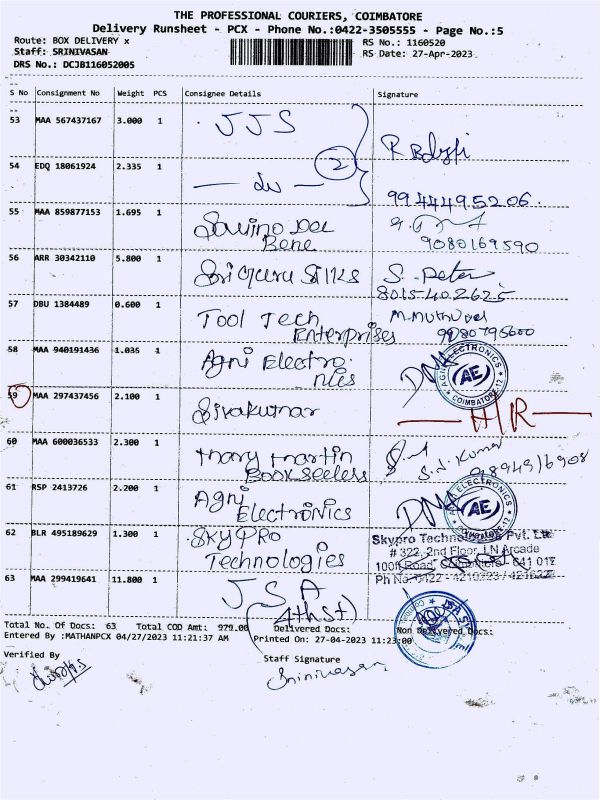 THE PROFESSIONAL COURIERS, COIMBATORE
Delivery Runsheet - PCX - Phone No.:0422-3505555 - Page No.:5
Route: BOX DELIVERY x RS No.: 1160520
Staff: SRINIVASAN RS Date: 27-Apr-2023
DRS No.: DCJB116052005
S No Consignment No Weight PCS Consignee Details Signature
53 MAA 567437167 3.000 1 JJS
2
54 EDQ 18061924 2.335 1 9944495206
55 MAA 859877153 1.695 1 Savino Del
Bene 9080169590
56 ARR 30342110 5.800 1 Sri Guru Silks S. Peter
8015402625
57 DBU 1384489 0.600 1 Tool Tech M. Muthuvel
Enterprises
58 MAA 940191436 1.035 1 Agni Electro
nics
AGNI ELECTRONICS
AE
COIMBATORE-12
59 MAA 297437456 2.100 1 Sivakumar
60 MAA 600036533 2.300 1 Mary Martin
Book Seeless S.N. Kumar
9894916908
61 RSP 2413726 2.200 1 Agni
Electronics
AGNI ELECTRONICS
AE
62 BLR 495189629 1.300 1 Skypro
Technologies
Skypro Technologies Pvt. Ltd
# 322, 2nd Floor, LN Arcade
100ft Road, Coimbatore - 641 012
Ph No: 0422 -
63 MAA 299419641 11.800 1 JSA
(4th St)
Total No. Of Docs: 63 Total COD Amt: 979.00 Delivered Docs: Non Delivered Docs:
Entered By :MATHANPCX 04/27/2023 11:21:37 AM Printed On: 27-04-2023 11:23:00
Verified By Staff Signature
Srinivasan